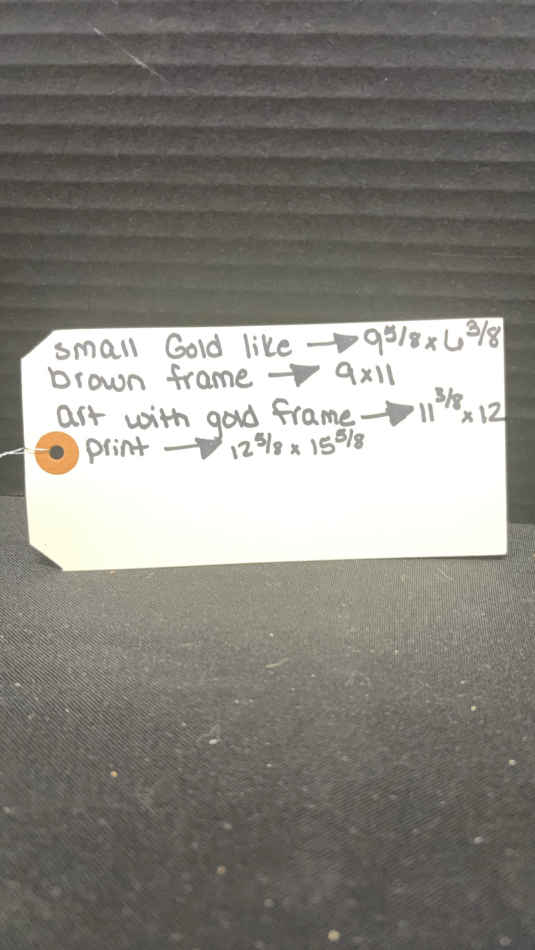 small Gold like → 9 5/8 x 6 3/8
brown frame → 9x11
art with gold frame → 11 3/8 x 12
print → 12 5/8 x 15 5/8